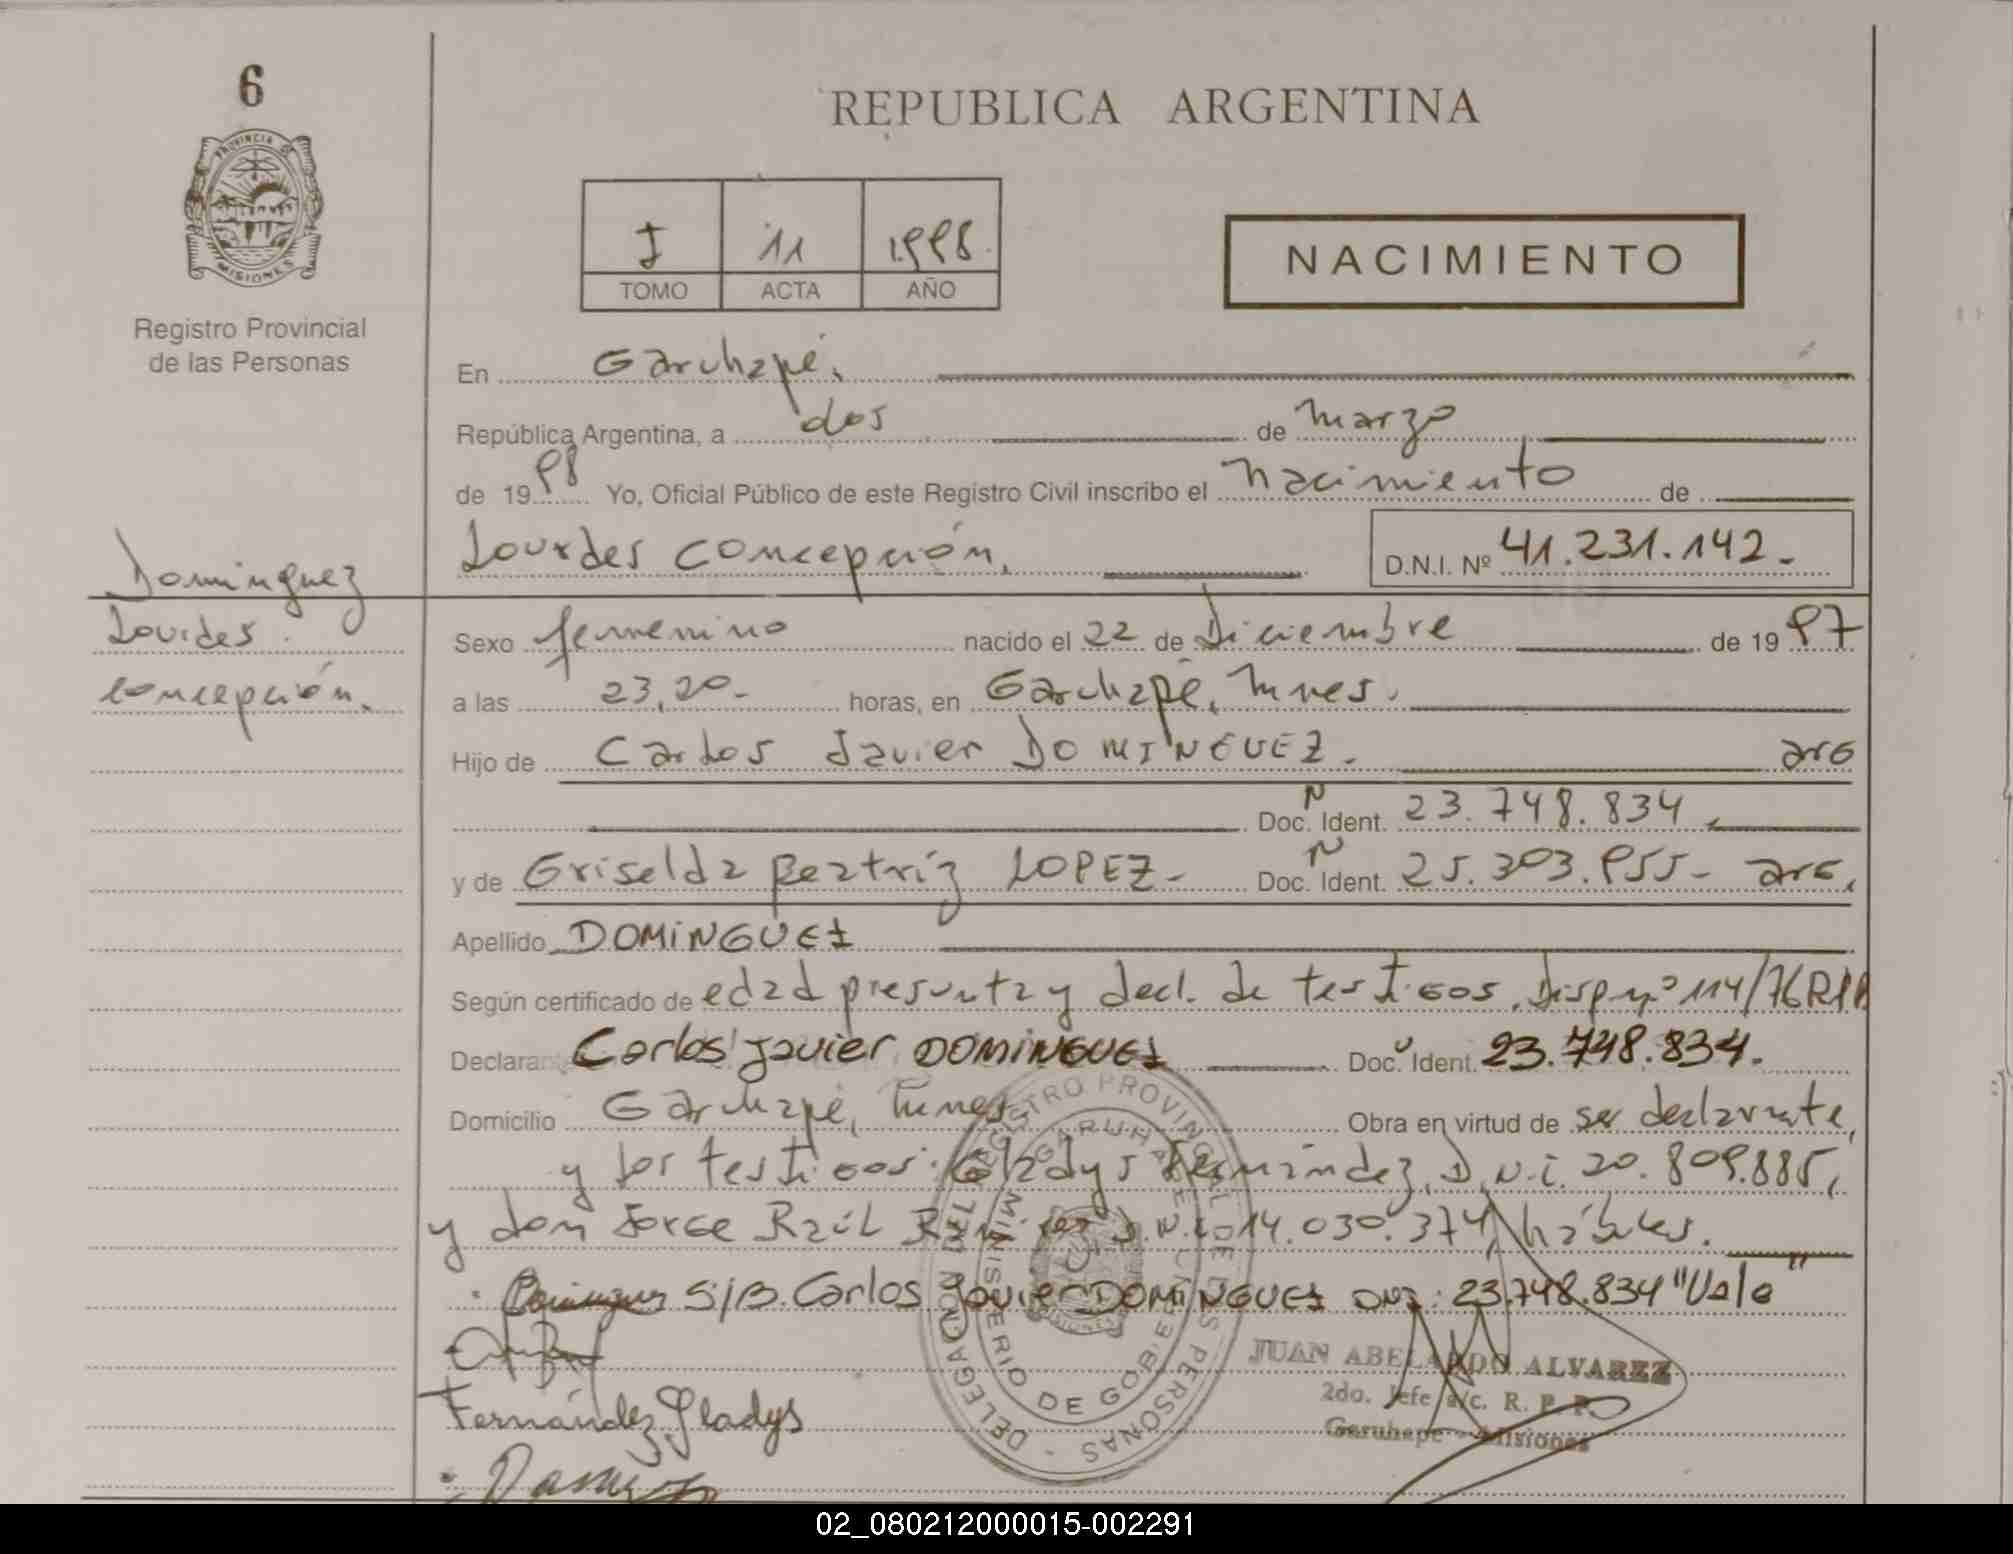 6
PROVINCIA DE
MISIONES
Registro Provincial
de las Personas
REPUBLICA ARGENTINA
I 11 1.998.
TOMO ACTA AÑO
NACIMIENTO
En Garuhapé.
República Argentina, a dos de marzo
de 19 98 Yo, Oficial Público de este Registro Civil inscribo el nacimiento de
Lourdes Concepción. D.N.I. Nº 41.231.142.-
Dominguez
Lourdes.
Concepción.
Sexo femenino nacido el 22 de Diciembre de 19 97
a las 23,20.- horas, en Garuhapé, Mnes.
Hijo de Carlos Javier DOMINGUEZ. arg
Doc. Ident. 23.748.834,
y de Griselda Beatríz LOPEZ- Doc. Ident. 25.303.955- arg.
Apellido DOMINGUEZ
Según certificado de edad presunta y decl. de testigos. Disp nº 114/76 RPP
Declarante Carlos Javier DOMINGUEZ Doc. Ident. 23.748.834.
Domicilio Garuhapé, Mnes. Obra en virtud de ser declarante,
y los testigos: Gladys Fernández, D.N.i. 20.809.885,
y don Jorge Raúl Ramirez, D.N.i. 14.030.374, hábiles.
Dominguez S/B. Carlos Javier DOMINGUEZ DNI: 23.748.834 "Vale"
Fernández Gladys
REGISTRO PROVINCIAL DE LAS PERSONAS - DELEGACION
GARUHAPE
MINISTERIO DE GOBIERNO
MISIONES
JUAN ABELARDO ALVAREZ
2do. Jefe a/c. R. P. P.
Garuhape - Misiones
02_080212000015-002291